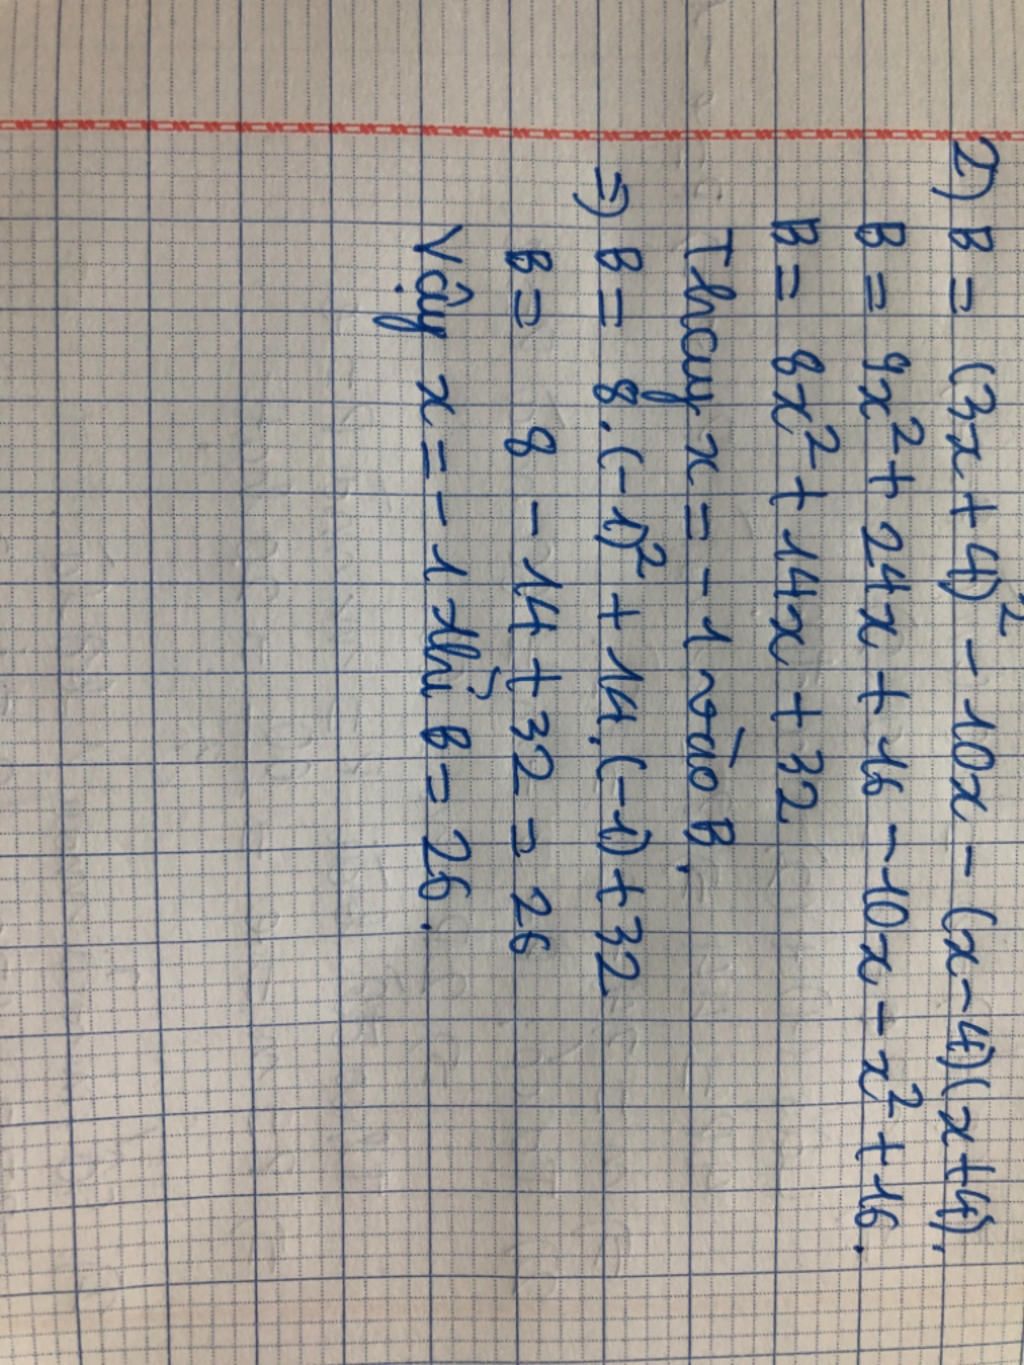 2) B = (3x + 4)² - 10x - (x - 4)(x + 4).
B = 9x² + 24x + 16 - 10x - x² + 16.
B = 8x² + 14x + 32
Thay x = -1 vào B.
=) B = 8.(-1)² + 14.(-1) + 32
B = 8 - 14 + 32 = 26
Vậy x = -1 thì B = 26.